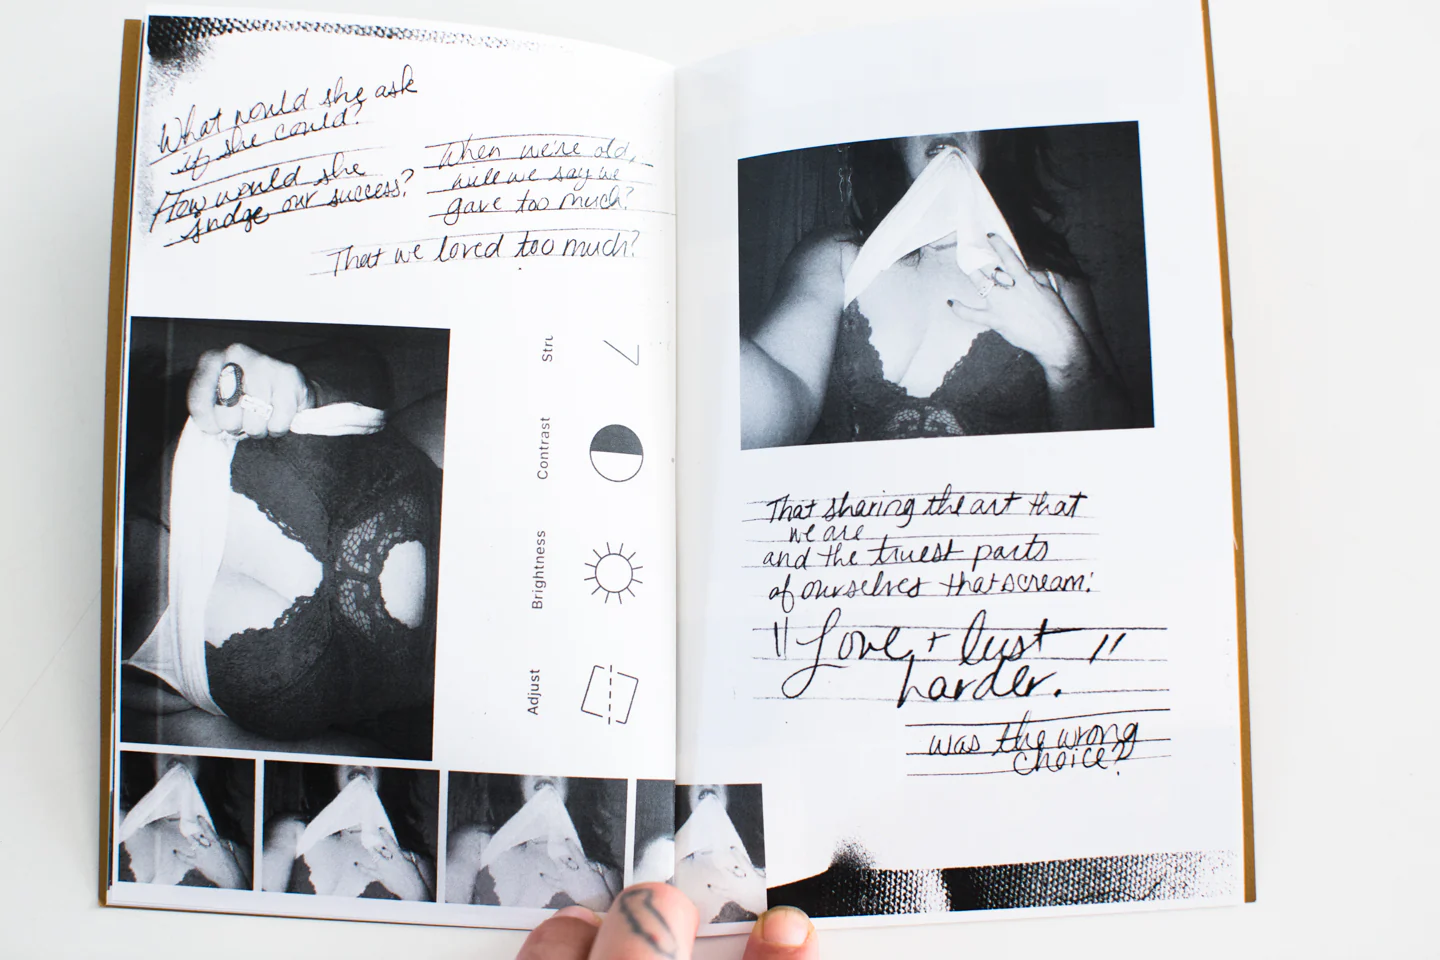 What would she ask
if she could?
How would she
judge our success?
When we're old,
will we say we
gave too much?
That we loved too much?
Contrast
Brightness
Adjust
That sharing the art that
we are
and the truest parts
of ourselves that scream:
"Love + lust"
harder.
was the wrong
choice?